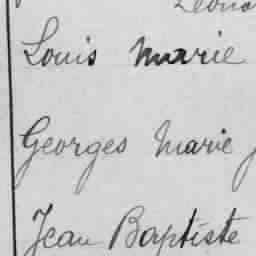 Louis Marie
Georges Marie
Jean Baptiste